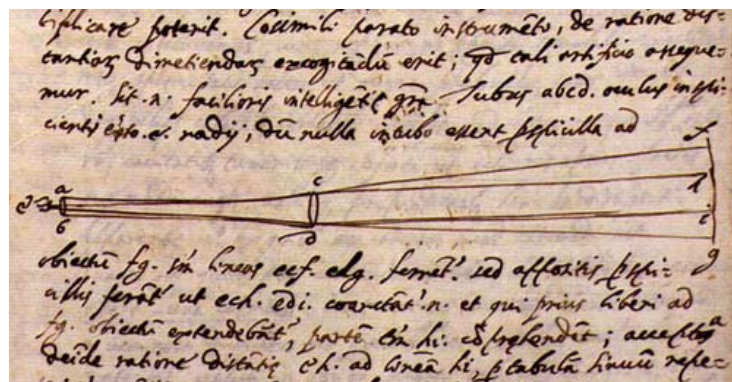 tiplicare poterit. Cōsimili parato instrumēto, de ratione dis-
tantiaꝝ dimetiendaꝝ excogitādū erit; qđ tali artificio asseque-
mur. Sit .n. facilioris intelligētię grā Tubus abcd. oculus inspi-
cientis esto .e. radij, dū nulla in tubo essent pspicilla ad
f
c
a
h
e
i
b
d
g
obiectū fg. sm̄ lineas ecf. edg. ferrēt.r sed appositis pspi-
cillis ferāt.r ut ech. edi. coarctāt.r .n. et qui prius liberi ad
fg. obiectū extendebāt.r, partē tm̄ hi. cōprehendēt; acceptaa
deīde ratione distātię eh. ad lineā hi, p tabulā sinuū repe-